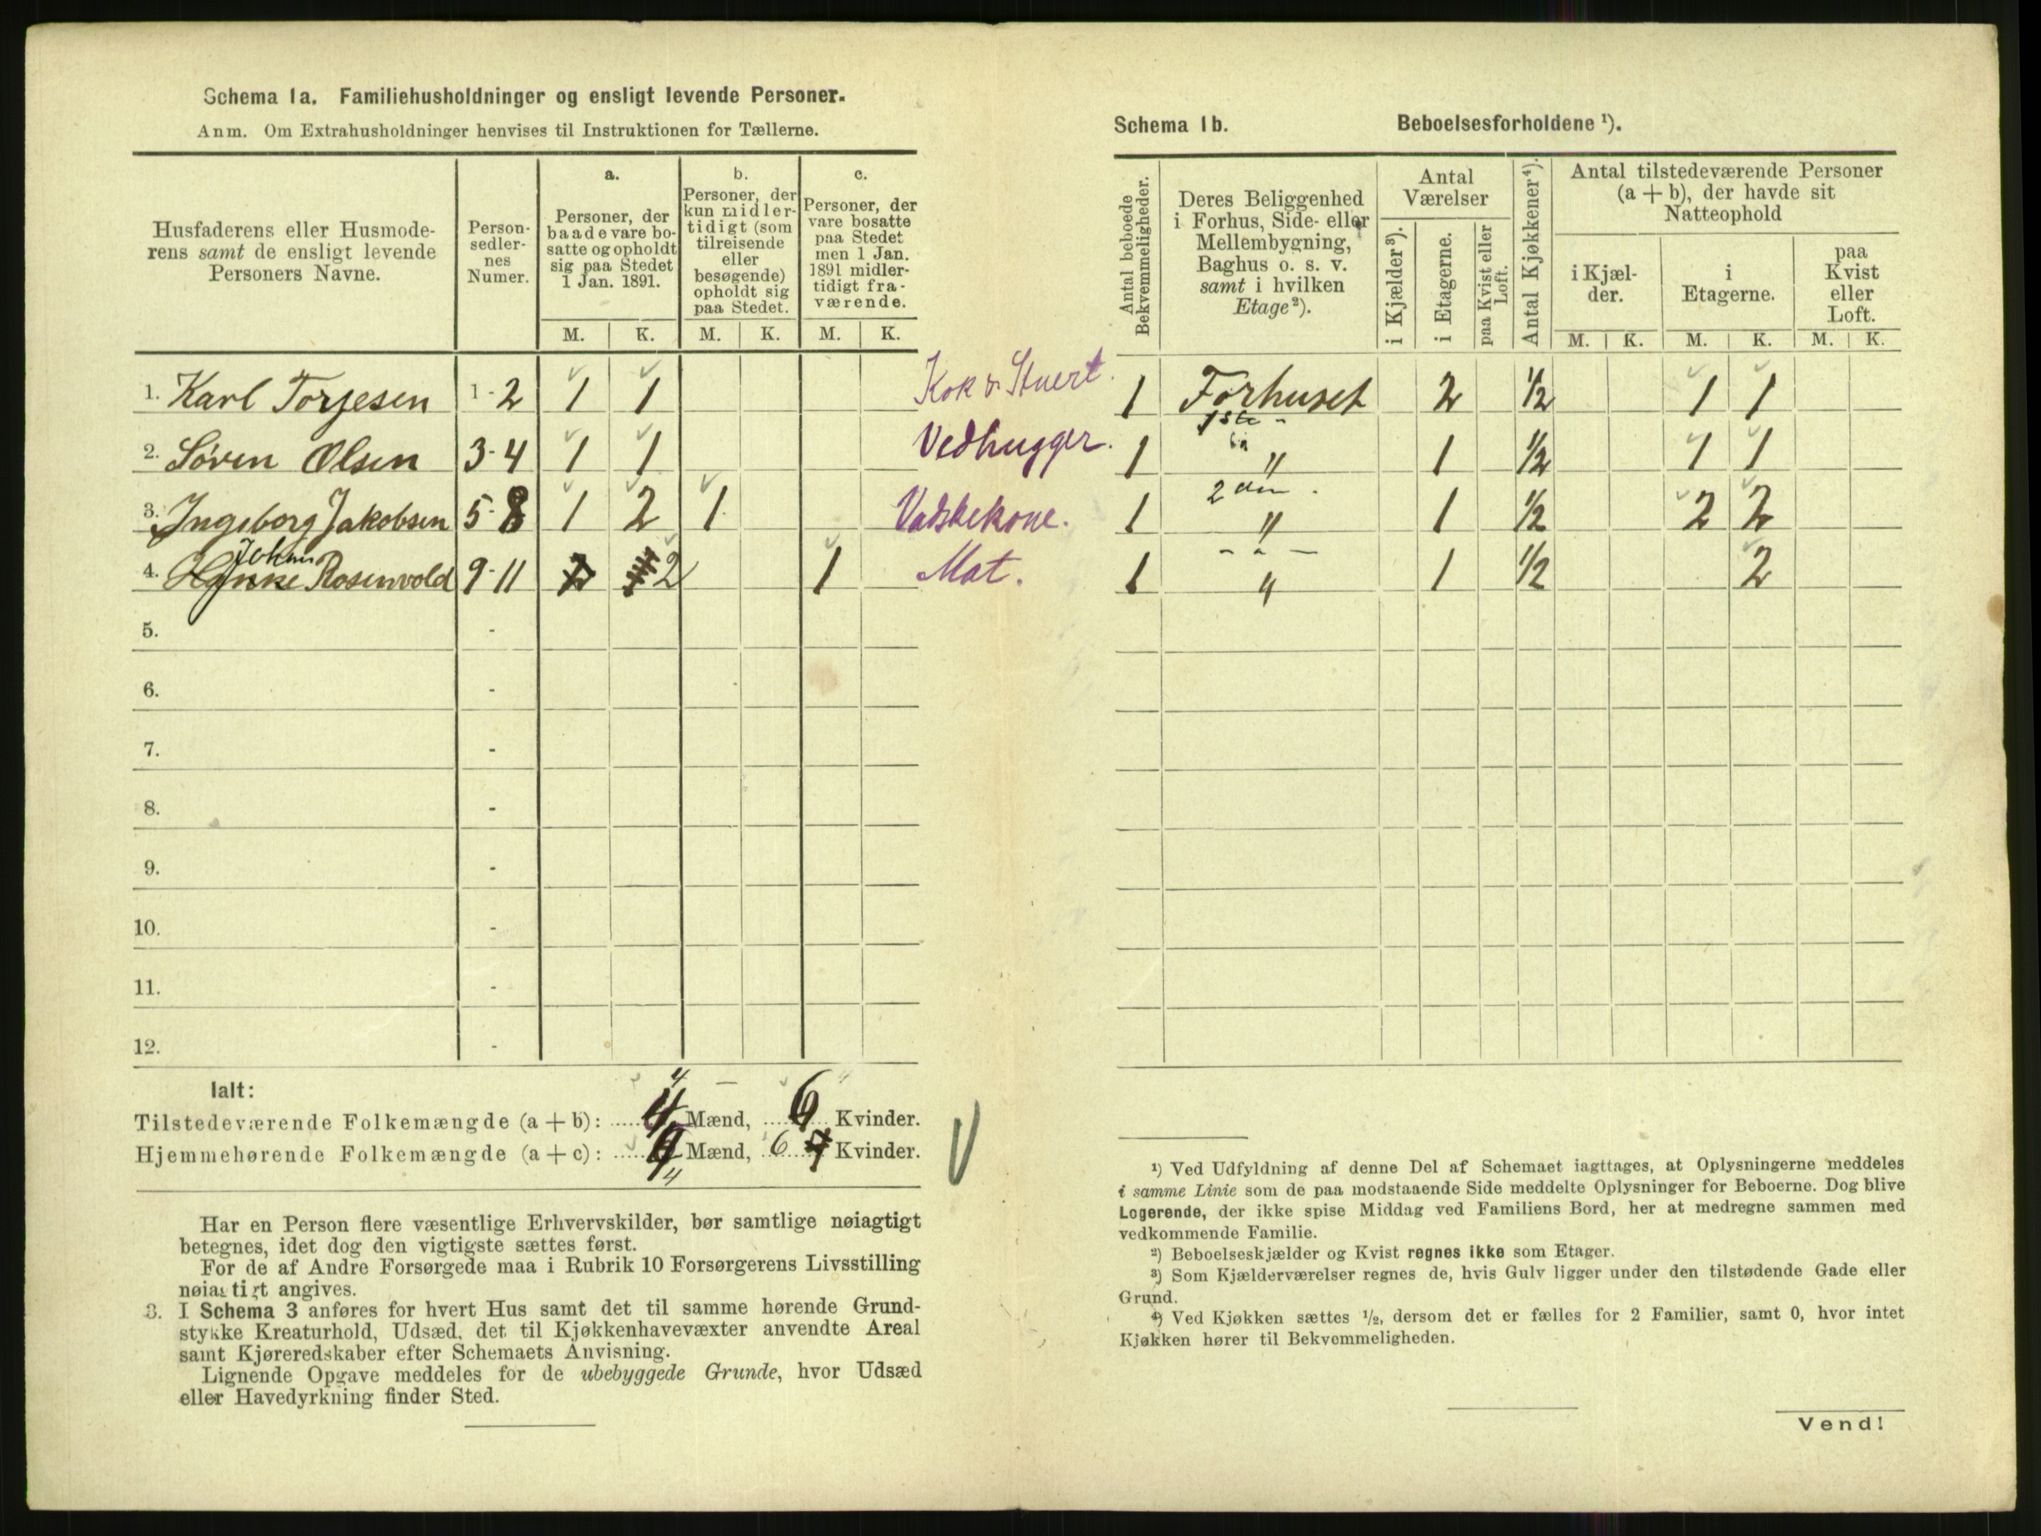 Schema 1a. Familiehusholdninger og ensligt levende Personer.
Anm. Om Extrahusholdninger henvises til Instruktionen for Tællerne.
Husfaderens eller Husmoderens samt de ensligt levende Personers Navne.
Personsedlernes Numer.
a. Personer, der baade vare bosatte og opholdt sig paa Stedet 1 Jan. 1891.
b. Personer, der kun midlertidigt (som tilreisende eller besøgende) opholdt sig paa Stedet.
c. Personer, der vare bosatte paa Stedet men 1 Jan. 1891 midlertidigt fraværende.
M. K. M. K. M. K.
1. Karl Torjesen 1-2 1 1 Kok & Stuert.
2. Søren Olsen 3-4 1 1 Vedhugger.
3. Ingeborg Jakobsen 5-8 1 2 1 Vadskekone.
4. Johan Rosenvold 9-11 2 1 Mat.
5. -
6. -
7. -
8. -
9. -
10. -
11. -
12. -
Ialt:
Tilstedeværende Folkemængde (a + b): 4 Mænd, 6 Kvinder.
Hjemmehørende Folkemængde (a + c): 4 Mænd, 6 Kvinder.
Har en Person flere væsentlige Erhvervskilder, bør samtlige nøiagtigt
betegnes, idet dog den vigtigste sættes først.
For de af Andre Forsørgede maa i Rubrik 10 Forsørgerens Livsstilling
nøiagtigt angives.
3. I Schema 3 anføres for hvert Hus samt det til samme hørende Grund-
stykke Kreaturhold, Udsæd, det til Kjøkkenhavevæxter anvendte Areal
samt Kjøreredskaber efter Schemaets Anvisning.
Lignende Opgave meddeles for de ubebyggede Grunde, hvor Udsæd
eller Havedyrkning finder Sted.
Schema 1b. Beboelsesforholdene ¹).
Antal beboede Bekvemmeligheder.
Deres Beliggenhed i Forhus, Side- eller Mellembygning, Baghus o. s. v. samt i hvilken Etage²).
Antal Værelser
i Kjælder³).
i Etagerne.
paa Kvist eller Loft.
Antal Kjøkkener⁴).
Antal tilstedeværende Personer (a + b), der havde sit Natteophold
i Kjælder.
i Etagerne.
paa Kvist eller Loft.
M. K. M. K. M. K.
1 Forhuset 1ste 2 1/2 1 1
1 " 1 1/2 1 1
1 2den " 1 1/2 2 2
1 - " - " 1 1/2 2
¹) Ved Udfyldning af denne Del af Schemaet iagttages, at Oplysningerne meddeles
i samme Linie som de paa modstaaende Side meddelte Oplysninger for Beboerne. Dog blive
Logerende, der ikke spise Middag ved Familiens Bord, her at medregne sammen med
vedkommende Familie.
²) Beboelseskjælder og Kvist regnes ikke som Etager.
³) Som Kjælderværelser regnes de, hvis Gulv ligger under den tilstødende Gade eller
Grund.
⁴) Ved Kjøkken sættes ½, dersom det er fælles for 2 Familier, samt 0, hvor intet
Kjøkken hører til Bekvemmeligheden.
Vend!